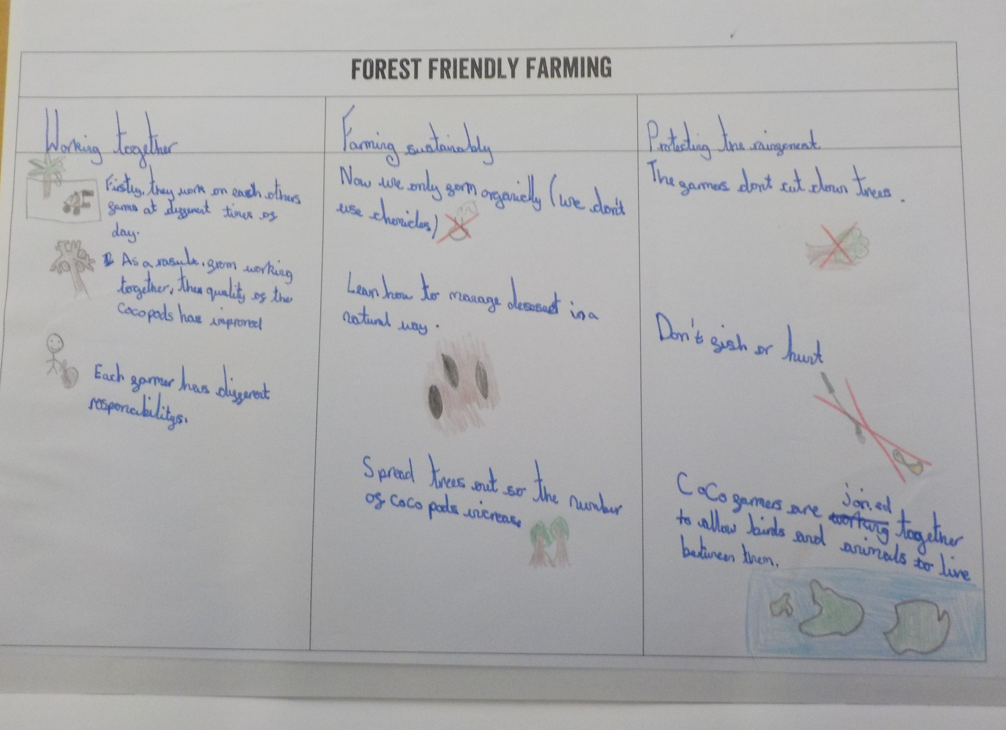 FOREST FRIENDLY FARMING
Working together
Firstly, they work on each others
farms at different times of
day.
As a result from working
together, the quality of the
Cocopods has improved
Each farmer has different
responsibilitys.
Farming sustainably
Now we only farm organiclly (we don't
use chemicles)
Lean how to manage in a
natural way.
Spread trees out so the number
of coco pods increase
Protecting the rainforest
The farmers don't cut down trees.
Don't fish or hunt
CoCo farmers are working joined together
to allow birds and animals to live
between them.